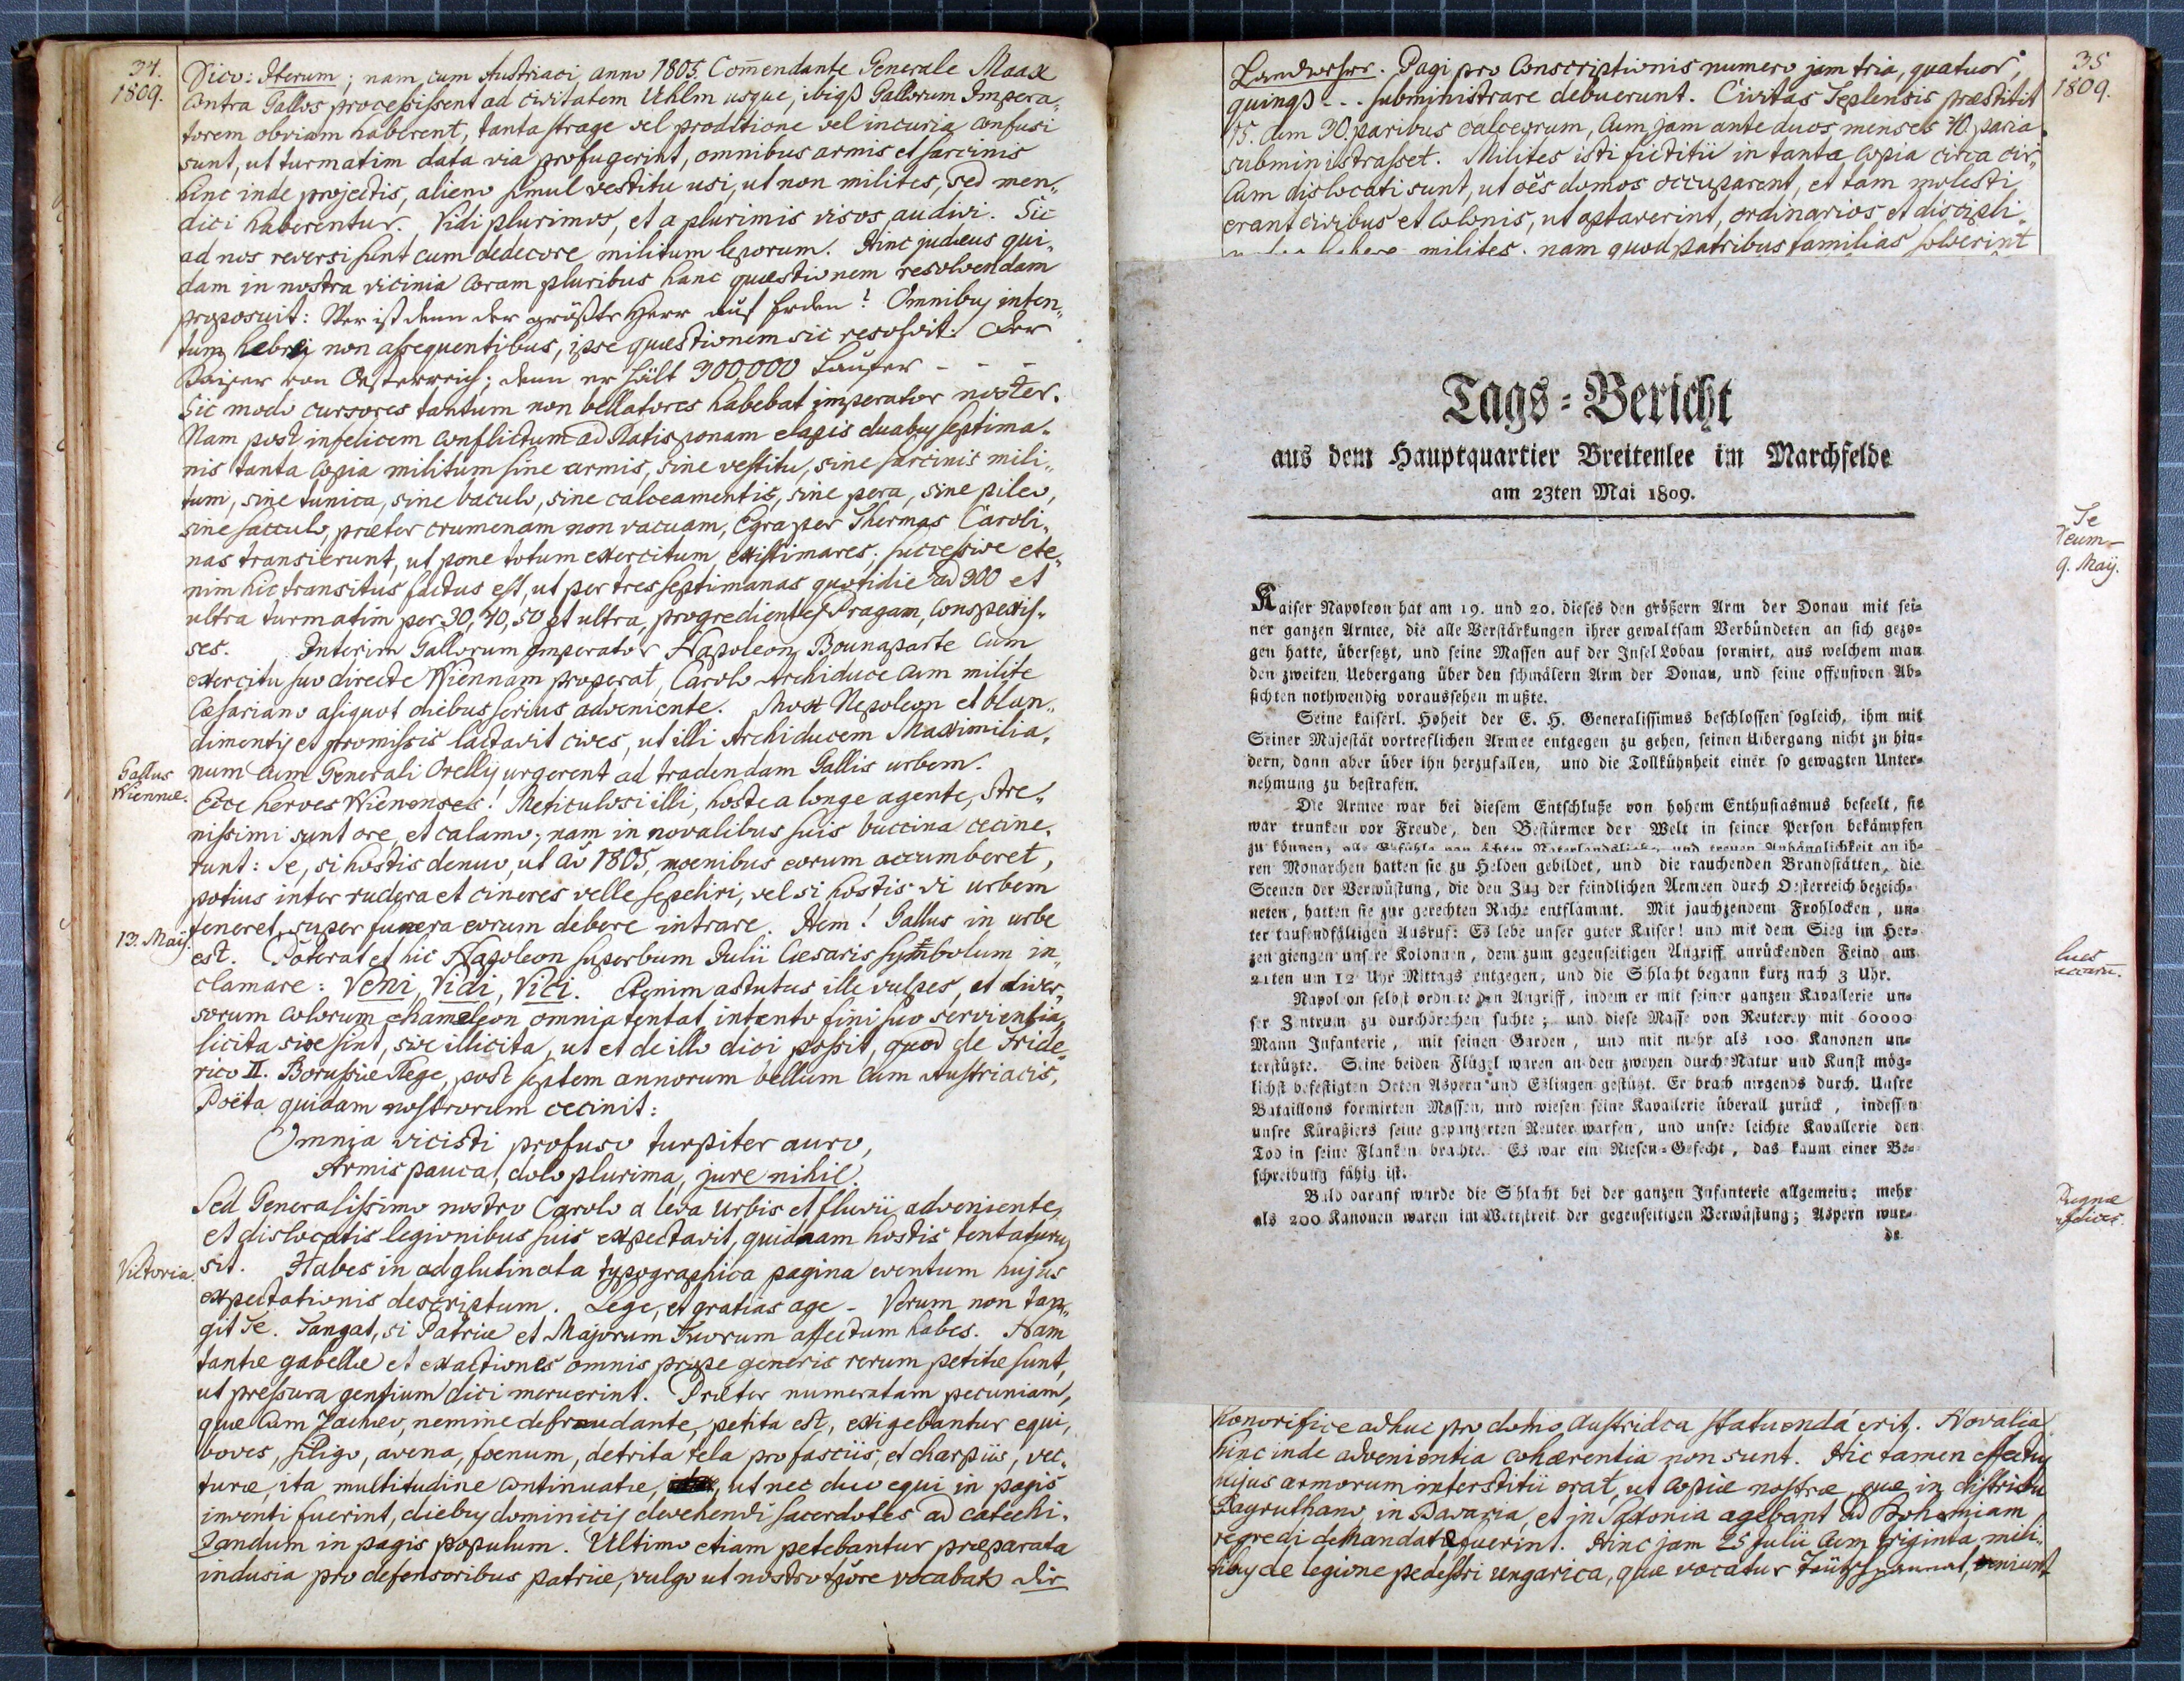 34.
1809.
Dico: Iterum; nam cum Austriaci anno 1805, Com̄endante Generale Maax
contra Gallos processissent ad civitatem Uhlm usque, ibiqß Gallorum Impera„
torem obviam haberent, tanta strage vel proditione vel incuria confusi
sunt, ut turmatim data via profugerint, omnibus armis et sarcinis
hinc inde projectis, alieno simul vestitu usi, ut non milites, sed men„
dici haberentur. Vidi plurimos, et a plurimis visos audivi. Sic
ad nos reversi sunt cum dedecore militum leporum. Hinc judæus qui„
dam in nostra vicinia coram pluribus hanc quæstionem resolvendam
proposuit: Wer ist denn der größte Herr auf Erden? Omnibus inten„
tum hebrei non assequentibus, ipse quæstionem sic resolvit: Der
Kaiser von Oesterreich; denn er hält 300000 Laufer - - -
Sic modo cursores tantum non bellatores habebat imperator noster.
Nam post infelicem conflictum ad Ratisponam elapis duabus septima„
nis tanta copia militum sine armis, sine vestitu, sine sarcinis mili„
tum, sine tunica, sine baculo, sine calceamentis, sine pera, sine pileo,
sine sacculo, præter crumenam non vacuam, Egra per Thermas Caroli„
nas transierunt, ut pone totum exercitum existimares; successive ete„
nim hic transitus factus est, ut per tres septimanas quotidie ad 300 et
ultra turmatim per 30, 40, 50 et ultra, progredientes Pragam, conspexis„
ses. Interim Gallorum Imperator Napoleon Bounaparte cum
exercitu suo directe Wiennam properat, Carolo Archiduce cum milite
Cæsariano aliquot diebus serius adveniente. Mox Nepoleon et blan„
dimentis et promissis lactavit cives, ut illi Archiducem Maximilia„
Gallus
Wiennæ.
num cum Generali Orelly urgerent ad tradendam Gallis urbem.
Ecce heroes Wienenses! Meticulosi illi, hoste a longe agente, stre„
nissimi sunt ore, et calamo; nam in novalibus suis buccina cecine„
runt: Se, si hostis denuo, ut aō 1805, moenibus eorum accumberet,
potius inter rudera et cineres velle sepeliri, vel si hostis vi urbem
teneret, super funera eorum debere intrare. Hem! Gallus in urbe
13. Maij.
est. Poterat et hic Napoleon superbum Julii Cæsaris symbolum in„
clamare: Veni, Vidi, Vici. Etenim astutus ille vulpes, et diver„
sorum colorum chamæleon omnia tentat intento fini suo servientia,
licita sive sint, sive illicita, ut et de illo dici possit, quod de Fride„
rico II. Borussiæ Rege, post septem annorum bellum cum Austriacis,
Poëta quidam nostrorum cecinit:
Omnia vicisti profuso turpiter auro,
Armis pauca, dolo plurima, jure nihil.
Sed Generalissimo nostro Carolo a leva Urbis et fluvii adveniente,
et dislocatis legionibus suis expectavit, quidnam hostis tentaturus
Victoria.
sit. Habes in adglutinata typographica pagina eventum hujus
expectationis descriptum. Lege, et gratias age - Verum non tan„
git Te. Tangat, si Patriæ et Majorum Tuorum affectum habes. Nam
tantæ gabellæ et exactiones omnis prope generis rerum petitæ sunt,
ut pressura gentium dici meruerint. Præter numeratam pecuniam,
quæ cum Zachæo, nemine defraudante, petita est, exigebantur equi,
boves, siligo, avena, foenum, detrita tela pro fasciis, et charpiis, vec„
turæ, ita multitudine continuatæ, ut nec duo equi in pagis
inventi fuerint, diebus dominicis devehendi sacerdotes ad catechi„
zandum in pagis populum. Ultimo etiam petebantur præparata
indusia pro defensoribus patriæ, vulgo ut nostro tp̄ore vocabat die
35
1809.
Landwehre. Pagi pro Conscriptionis numero jam tria, quatuor,
quinqß - - - subministrare debuerunt. Civitas Teplensis præstitit
15. cum 30 paribus calceorum, cum jam ante duos menses 40 paria
subministrasset. Milites isti fictitii in tanta copia circa cir„
cum dislocati sunt, ut oēs domos occuparent, et tam molesti
erant civibus et colonis, ut optaverint, ordinarios et discipli„
habere milites. nam quod patribus familias solverint
Tags-Bericht
aus dem Hauptquartier Breitenlee im Marchfelde
am 23ten Mai 1809.
Te
Deum
9. Maij.
Kaiser Napoleon hat am 19. und 20. dieses den größern Arm der Donau mit sei-
ner ganzen Armee, die alle Verstärkungen ihrer gewaltsam Verbündeten an sich gezo-
gen hatte, übersetzt, und seine Massen auf der Insel Lobau formirt, aus welchem man
den zweiten Uebergang über den schmälern Arm der Donau, und seine offensiven Ab-
sichten nothwendig voraussehen mußte.
Seine kaiserl. Hoheit der E. H. Generalissimus beschlossen sogleich, ihm mit
Seiner Majestät vortreflichen Armee entgegen zu gehen, seinen Uibergang nicht zu hin-
dern, dann aber über ihn herzufallen, und die Tollkühnheit einer so gewagten Unter-
nehmung zu bestrafen.
Die Armee war bei diesem Entschluße von hohem Enthusiasmus beseelt, sie
war trunken vor Freude, den Bestürmer der Welt in seiner Person bekämpfen
zu können, alle Gefühle von ächter Vaterlandsliebe, und treuen Anhänglichkeit an ih-
ren Monarchen hatten sie zu Helden gebildet, und die rauchenden Brandstätten, die
Scenen der Verwüstung, die den Zug der feindlichen Armeen durch Oesterreich bezeich-
neten, hatten sie zur gerechten Rache entflammt. Mit jauchzendem Frohlocken, un-
ter tausendfältigen Ausruf: Es lebe unser guter Kaiser! und mit dem Sieg im Her-
zen giengen unsere Kolonnen, dem zum gegenseitigen Angriff anrückenden Feind am
21ten um 12 Uhr Mittags entgegen, und die Schlacht begann kurz nach 3 Uhr.
Napoleon selbst ordnete den Angriff, indem er mit seiner ganzen Kavallerie un-
ser Zentrum zu durchbrechen suchte; und diese Masse von Reuterey mit 60000
Mann Infanterie, mit seinen Garden, und mit mehr als 100 Kanonen un-
terstützte. Seine beiden Flügel waren an den zweyen durch Natur und Kunst mög-
lichst befestigten Orten Aspern und Eßlingen gestützt. Er brach nirgends durch. Unsre
Bataillons formirten Massen, und wiesen seine Kavallerie überall zurück, indessen
unsre Küraßiers seine gepanzerten Reuter warfen, und unsre leichte Kavallerie den
Tod in seine Flanken brachte. Es war ein Riesen-Gefecht, das kaum einer Be-
schreibung fähig ist.
Bald darauf wurde die Schlacht bei der ganzen Infanterie allgemein: mehr
als 200 Kanonen waren im Wettstreit der gegenseitigen Verwüstung; Aspern wur-
de
lues
Pugnæ
honorifice adhuc pro domo Austriaca statuenda erit. Novalia
hinc inde advenientia cohærentia non sunt. Hic tamen effectus
hujus armorum interstitii erat, ut copiæ nostræ, quæ in districtu
Bayruthano, in Bavaria, et in Saxonia agebant ad Bohemiam
regredi demandatæ fuerint. Hinc jam 25 Julii cum triginta mili„
tibus de legione pedestri ungarica, quæ vocatur veniunt